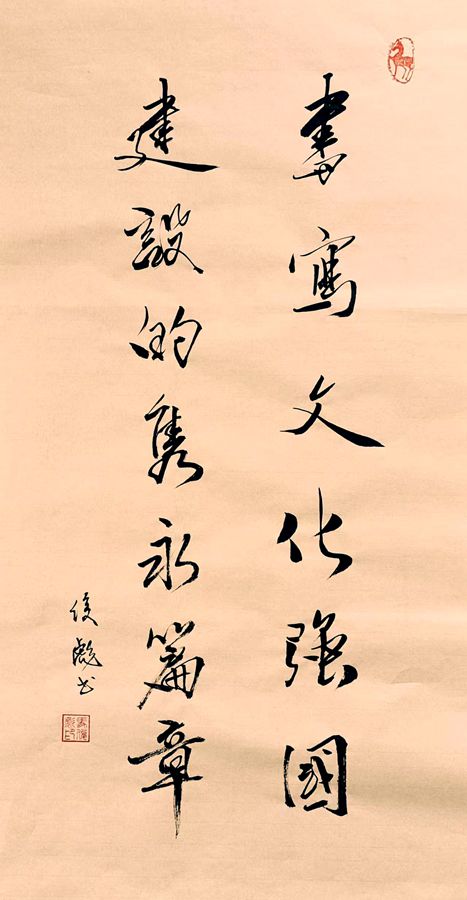 書寫文化強國
建設的雋永篇章
俊彪书